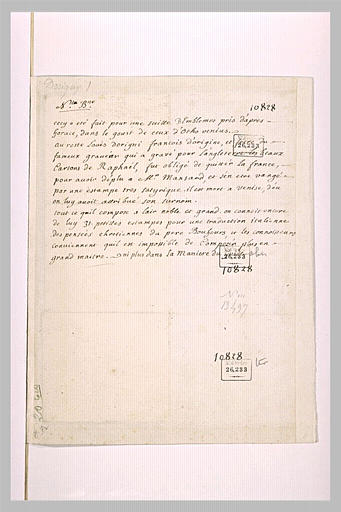 Dorigny 1
N.
10828
cecy a eté fait pour une suitte d'Emblemes pris d'apres
horace, dans le goust de ceux d'Otho venius.
au reste Louis dorigni francois d'origine, et
fameux graveur qui a gravé pour l'angleterre les beaux
Cartons de Raphaël, fut obligé de quitter la france,
pour avoir déplu a Mr. Mansard et s'en etre vangé
par une estampe tres satyrique. il est mort a venise, d'ou
on luy avoit attribué son surnom.
tout ce qu'il compose a l'air noble et grand. on connoit encore
de luy 31. petites estampes pour une traduction italienne
des pensées chrestiennes du pere Bouhours et les connoisseurs
conviennent qu'il est impossible de Composer plus en
grand maitre. ni plus dans la Maniere du
26,233
10828
13497
10828
26,233